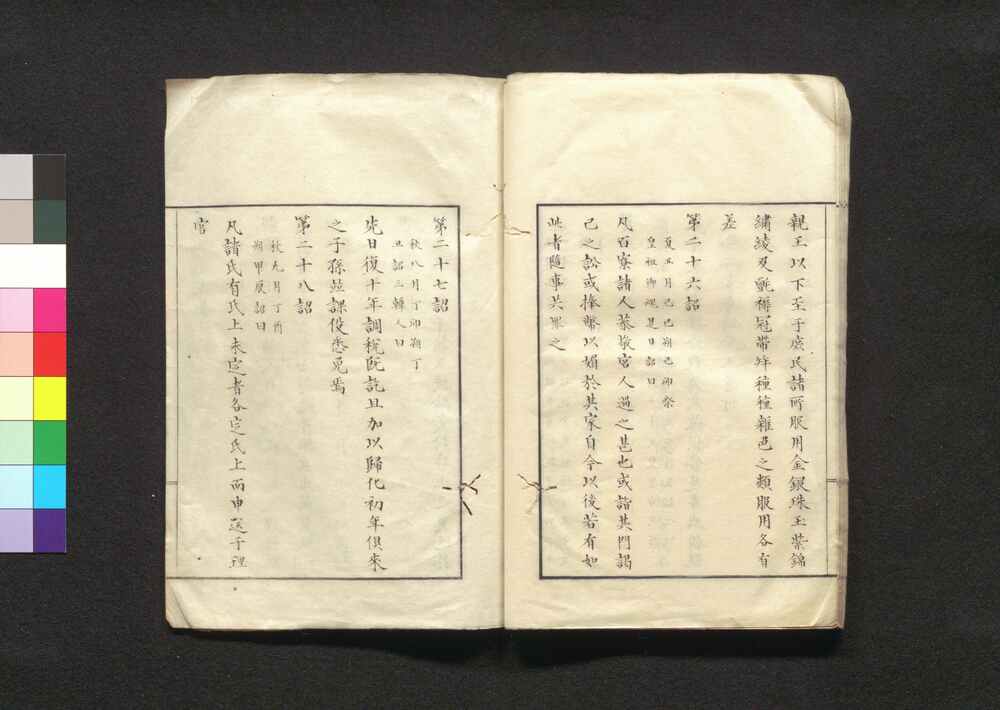 親王以下至于庶民諸所服用金銀珠玉紫錦
繡綾及氈褥冠帶幷種種雜色之類服用各有
差
第二十六詔
夏五月己巳朔己卯祭
皇祖御魂是日詔曰
凡百寮諸人恭敬宮人過之甚也或詣其門謁
己之訟或捧幣以媚於其家自今以後若有如
此者隨事共罪之
第二十七詔
秋八月丁卯朔丁
丑詔三韓人曰
先日復十年調税既訖且加以歸化初年俱來
之子孫並課役悉免焉
第二十八詔
秋九月丁酉
朔甲辰詔曰
凡諸氏有氏上未定者各定氏上而申送于理
官